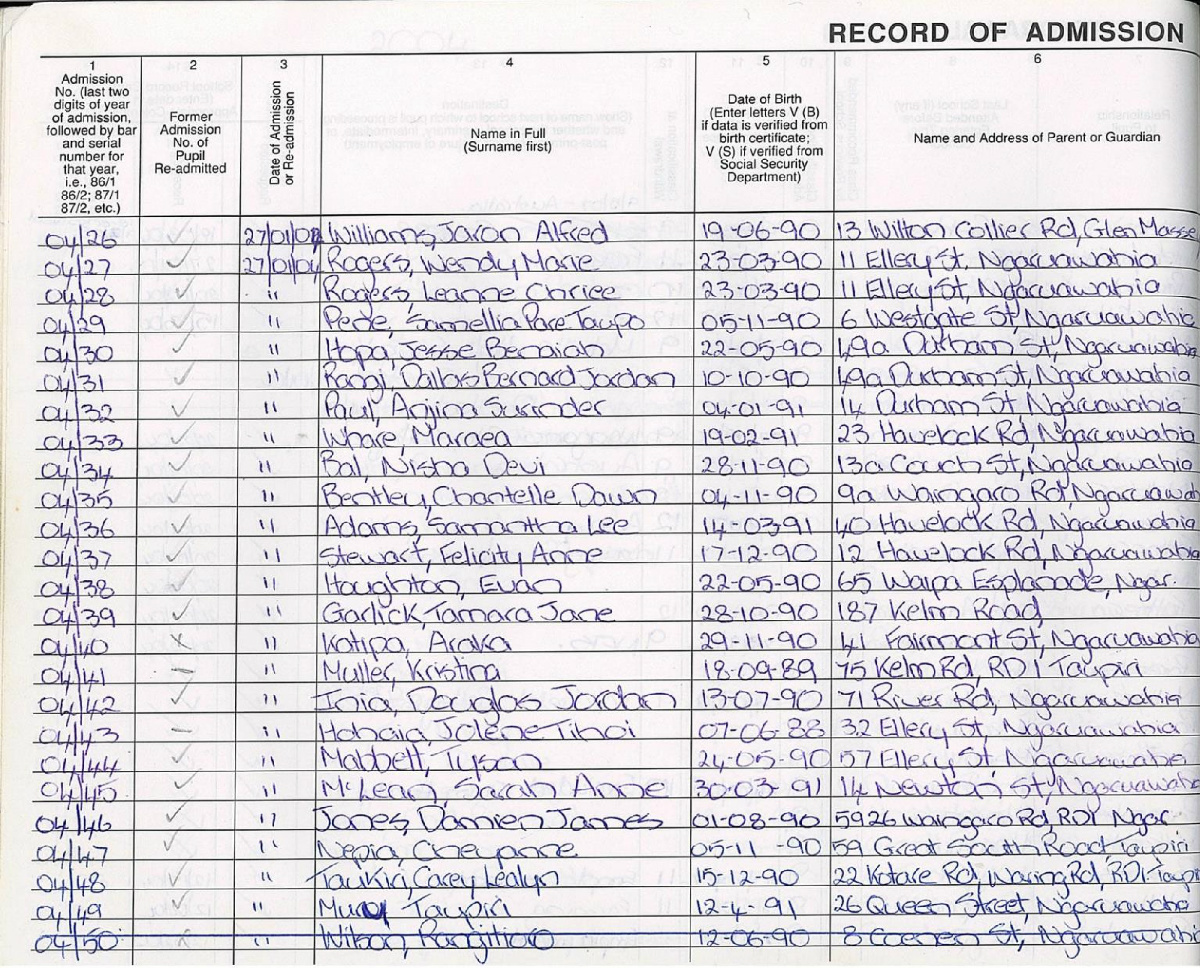 RECORD OF ADMISSION
1 2 3 4 5 6
Admission No. (last two digits of year of admission, followed by bar and serial number for that year, i.e., 86/1 86/2; 87/1 87/2, etc.)
Former Admission No. of Pupil Re-admitted
Date of Admission or Re-admission
Name in Full (Surname first)
Date of Birth (Enter letters V (B) if data is verified from birth certificate; V (S) if verified from Social Security Department)
Name and Address of Parent or Guardian
04/26 ✓ 27/01/04 Williams, Jaron Alfred 19-06-90 13 Wilton Collier Rd, Glen Masse
04/27 ✓ 27/01/04 Rogers, Wendy Marie 23-03-90 11 Ellery St, Ngaruawahia
04/28 ✓ " Rogers, Leanne Chriee 23-03-90 11 Ellery St, Ngaruawahia
04/29 ✓ " Pede, Samellia Pare Taupo 05-11-90 6 Westgate St, Ngaruawahia
04/30 ✓ " Hopa, Jesse Benaiah 22-05-90 49a Durham St, Ngaruawahia
04/31 ✓ " Rangi, Dallas Bernard Jordan 10-10-90 49a Durham St, Ngaruawahia
04/32 ✓ " Paul, Anjina Surinder 04-01-91 14 Durham St, Ngaruawahia
04/33 ✓ " Whare, Maraea 19-02-91 23 Havelock Rd, Ngaruawahia
04/34 ✓ " Bal, Nisha Devi 28-11-90 13a Couch St, Ngaruawahia
04/35 ✓ " Bentley, Chantelle Dawn 04-11-90 9a Waingaro Rd, Ngaruawah
04/36 ✓ " Adams, Samantha Lee 14-03-91 40 Havelock Rd, Ngaruawahia
04/37 ✓ " Stewart, Felicity Anne 17-12-90 12 Havelock Rd, Ngaruawahia
04/38 ✓ " Houghton, Euan 22-05-90 65 Waipa Esplanade, Ngar.
04/39 ✓ " Garlick, Tamara Jane 28-10-90 187 Kelm Road,
04/40 x " Katipa, Araka 29-11-90 41 Fairmont St, Ngaruawahia
04/41 – " Muller, Kristina 18-09-89 75 Kelm Rd, RD1 Taupiri
04/42 ✓ " Inia, Douglas Jordan 13-07-90 71 River Rd, Ngaruawahia
04/43 – " Hohaia, Jolene Tihoi 07-06-88 32 Ellery St, Ngaruawahia
04/44 ✓ " Mabbett, Tyson 24-05-90 57 Ellery St, Ngaruawahia
04/45 ✓ " McLean, Sarah Anne 30-03-91 14 Newton St, Ngaruawahia
04/46 ✓ " Jones, Damien James 01-08-90 592b Waingaro Rd, RD1 Ngar.
04/47 ✓ " Nepia, Cheyanne 05-11-90 59 Great South Road, Taupiri
04/48 ✓ " Taukiri, Carey Lealyn 15-12-90 22 Kotare Rd, Waring Rd, RD1 Taupir
04/49 ✓ " Taupiri 12-4-91 26 Queen Street, Ngaruawahia
04/50 x " Wilson, Rangitioro 12-06-90 8 Coenen St, Ngaruawahi